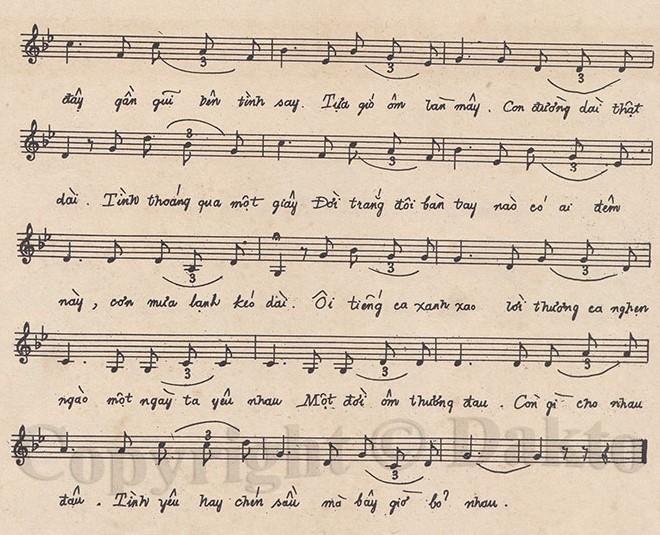 đây gần gũi bên tình say. Tựa gió ôm làn mây. Con đường dài thật
dài. Tình thoáng qua một giây Đời trắng đôi bàn tay nào có ai đêm
này, cơn mưa lạnh kéo dài. Ôi tiếng ca xanh xao lời thương ca nghẹn
ngào một ngày ta yêu nhau Một đời ôm thương đau. Còn gì cho nhau
đâu. Tình yêu hay chén sầu mà bây giờ bỏ nhau.
Copyright © Dakto